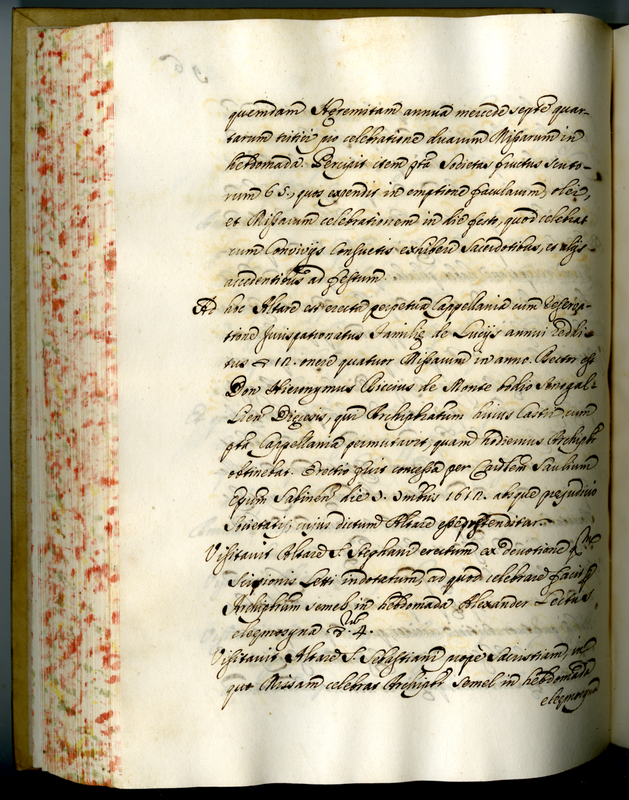 96
quemdam Heremitam annua mercede seqte quar-
tarum tritici pro celebratione duarum Missarum in
hebdomada. Percipit item pta Societas fructus scuto-
rum 65, quos expendit in emptione facularum, olei,
et Missarum celebrationem in die festo, quod celebrat
cum Convivijs consuetis exhiberi Sacerdotibus, et alijs
accedentibus ad festum
Ad hoc Altare est erecta perpetua Cappellania cum reserva-
tione Jurispatronatus Familiæ de Lucijs annui reddi-
tus onere quatuor Missarum in anno. Rector est
Don Hieronymus Riccius de Monte Senogal-
lien Diœcesis, qui Archiprâtum huius Castri cum
pta Cappellania permutavit, quam hodiernus Archipr
obtinebat. Erectio fuit concessa per Cardlem Saulium
Epum Sabinen die absque prejudicio
Societatis, cujus dictum Altare esse prætenditur.
Visitavit Altare S. Stephani erectum ex devotione
Scipionis Letti indotatum, ad quod celebrare facit
Archiprbrum semel in hebdomada Alexander Lectus
eleemosyna 4.
Visitavit Altare S. Sebastiani prope Sacristiam, in
quo Missam celebrat Archipr semel in hebdomada
eleemosyna